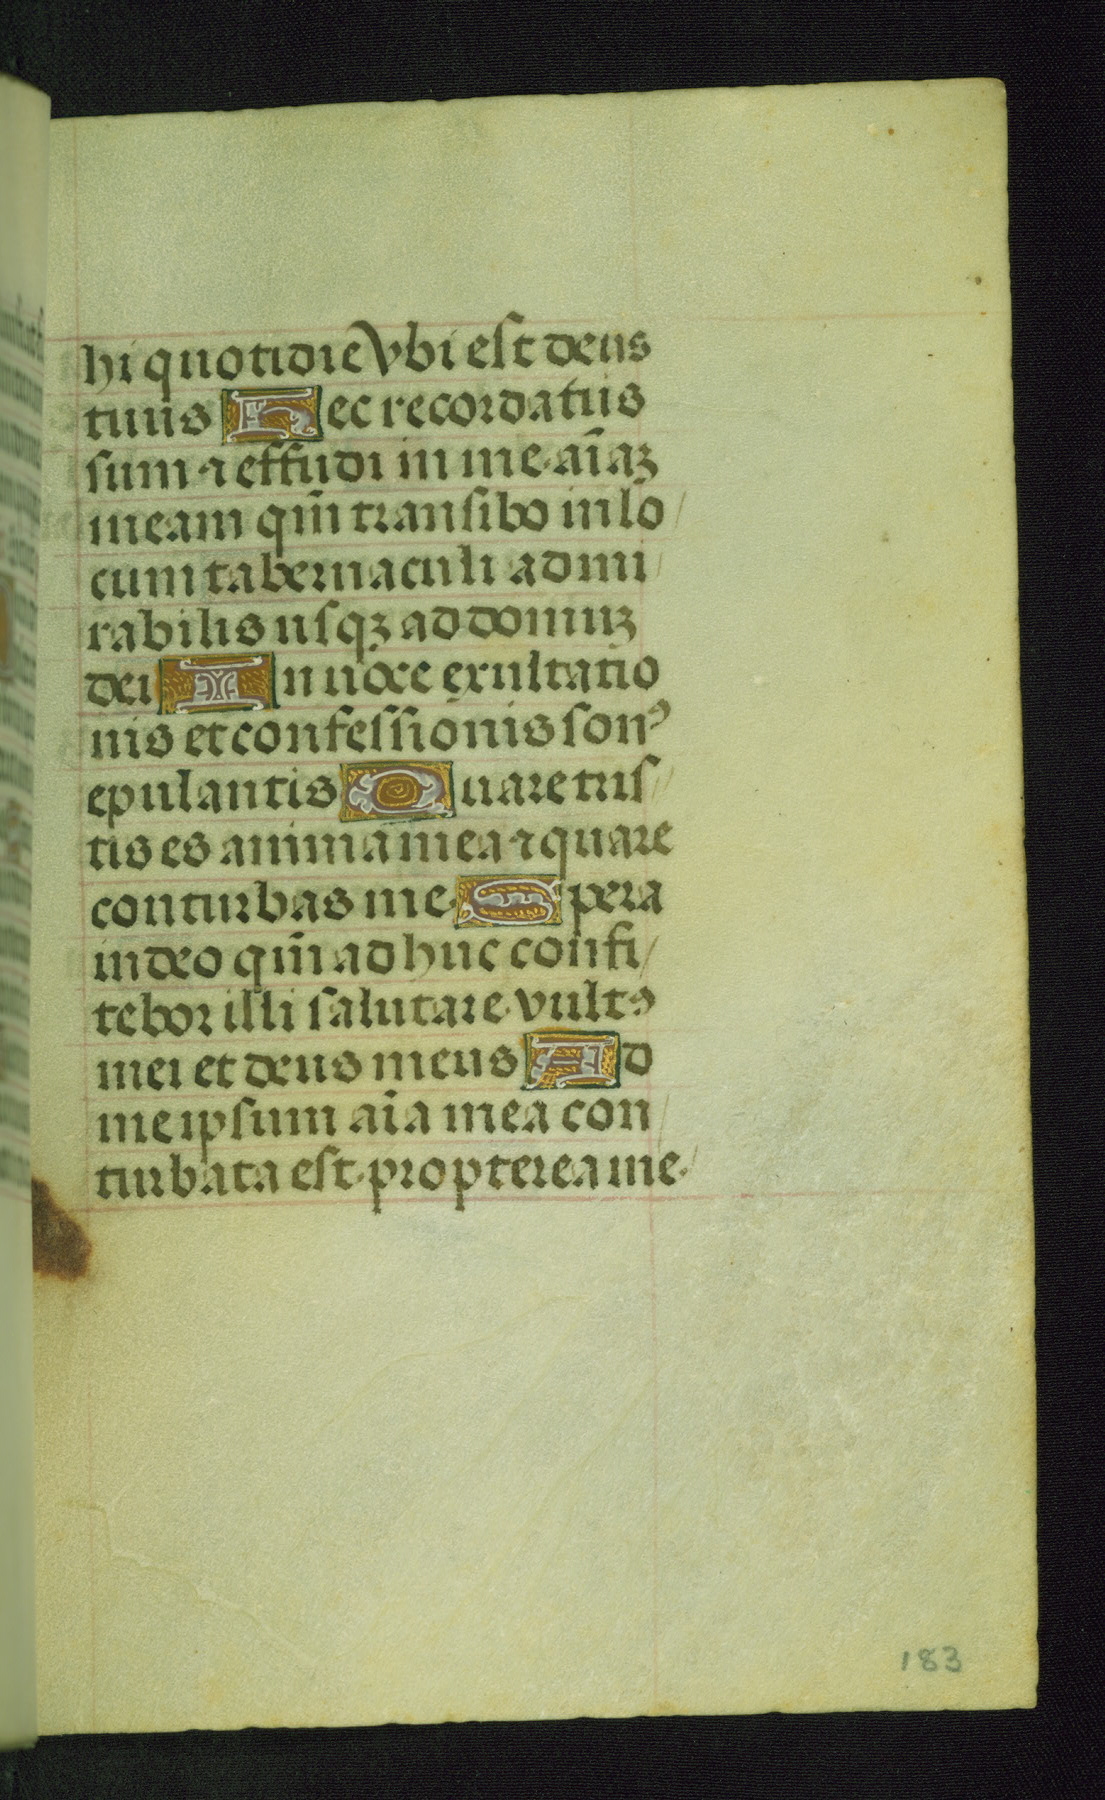 hi quotidie Vbi est deus
tuus Hec recordatus
sum ⁊ effudi in me aīaꝫ
meam qm̄ transibo in lo/
cum tabernaculi admi/
rabilis usqꝫ ad domuꝫ
dei In uoce exultatio
nis et confessionis sonꝰ
epulantis Quare tris/
tis es anima mea ⁊ quare
conturbas me Spera
in deo qm̄ adhuc confi/
tebor illi salutare vultꝰ
mei et deus meus Ad
me ipsum aīa mea con/
turbata est propterea me/
183